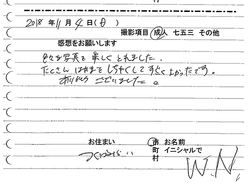 2018年11月4日(日) 撮影項目 成人 七五三 その他
感想をお願いします
色々な写真を楽しくとれました。
たくさん
すごくよかったです。
ありがとうございました。
お住まい 市 お名前
つくばみらい 町 イニシャルで
村 W.N.